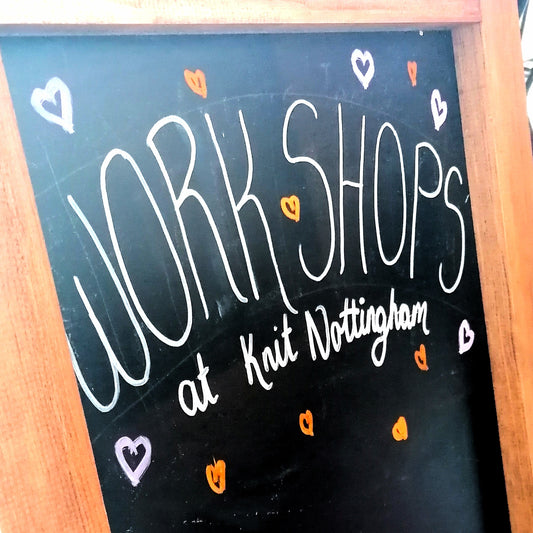 WORKSHOPS
at Knit Nottingham